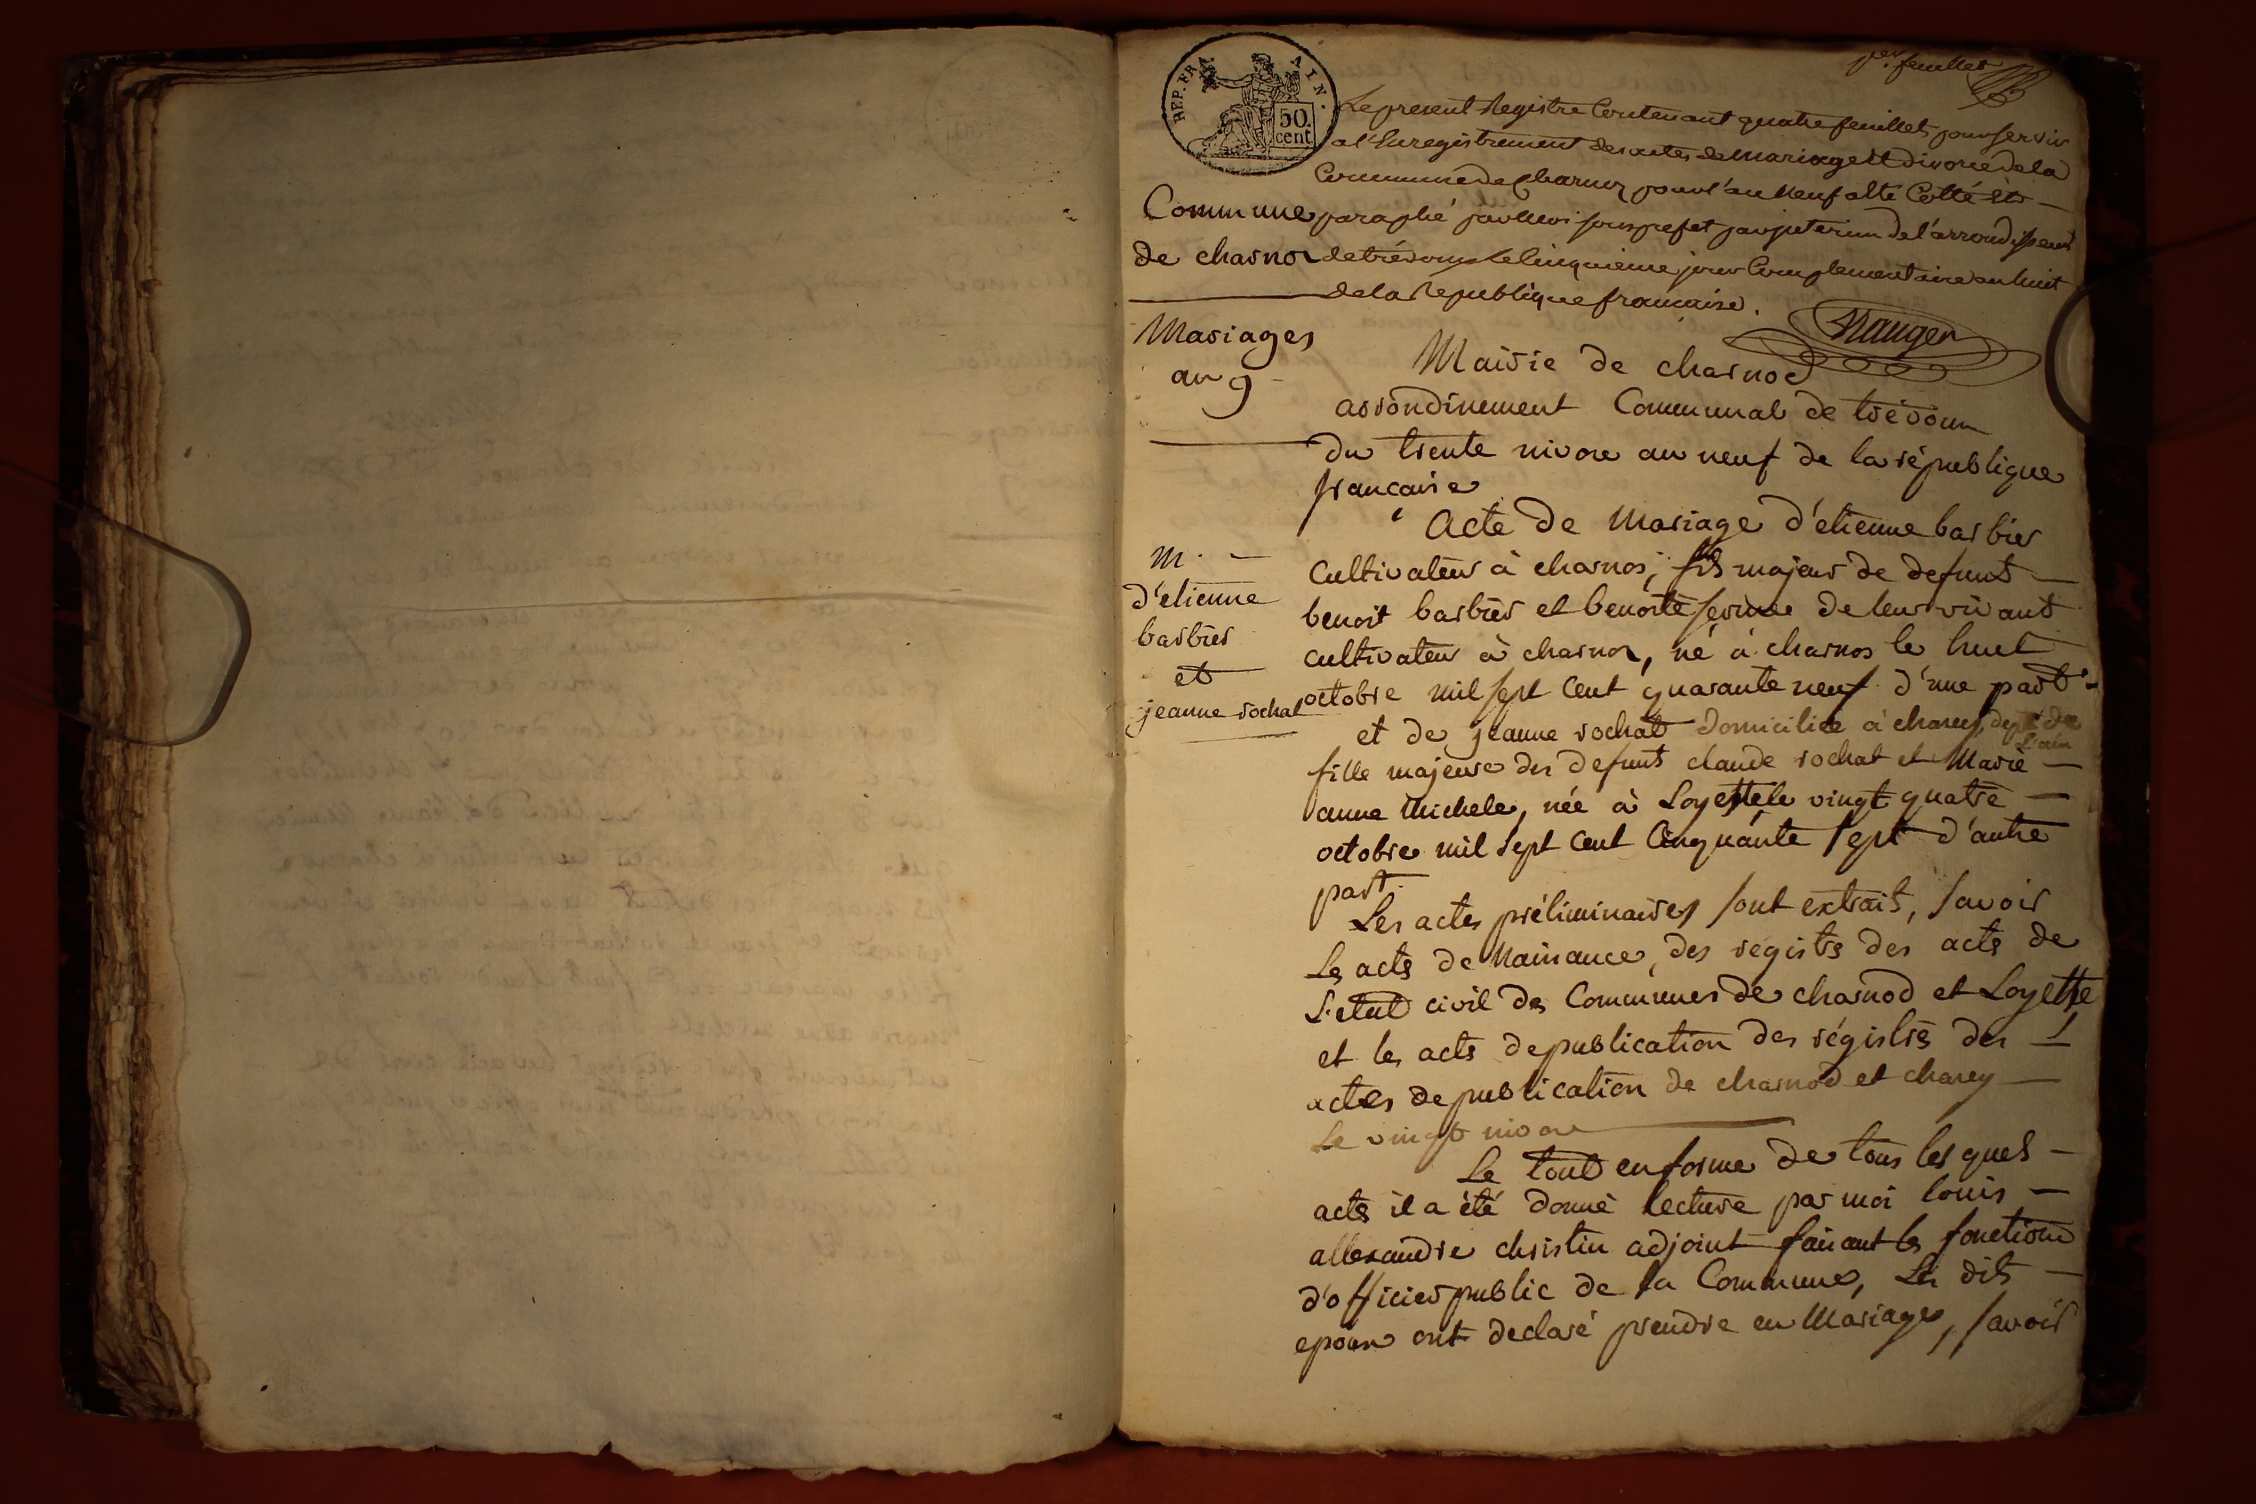 1er feuillet
REP. FRA AIN.
50.
cent
Le present Registre Contenant quatre feuillets pour servir
a l'Enregistrement des actes de Mariage et divorce de la
Commune de Charnoz pour l'an Neuf a été Cotté et
paraphé par moi sous prefet par interim de l'arrondissement
de trévoux le cinquieme jour Complementaire an huit
de la Republique francaise.
Commune
de charnoz
Mariages
an 9
Mairie de charnod
arrondissement Communal de trévoux
du trente nivose an neuf de la république
francaise
Acte de Mariage d'etienne barbier
Cultivateur à charnos, fils majeur de defunts
benoit barbier et benoite de leur vivant
cultivateur à charnoz, né à charnos le huit
octobre mil sept Cent quarante neuf d'une part
m.
d'etienne
barbier
et
jeanne rochat
et de jeanne rochat domiciliée à charey, dept de
l'ain
fille majeure des defunts claude rochat et Marie
anne Michele, née à Loyette le vingt quatre
octobre mil sept Cent Cinquante sept d'autre
part.
Les actes préliminaires sont extrait, savoir
Les acts de Naissance, des régists des acts de
L'etat civil des Communes de charnod et Loyette
et les acts de publication des régists des
actes de publication de charnod et charey
Le vingt nivose
Le tout en forme de tous les quels
acts il a été donné lecture par moi louis
allexandre christin adjoint faisant les fonctions
d'officier public de la Commune, Les dits
epoux ont declaré prendre en Mariage, savoir